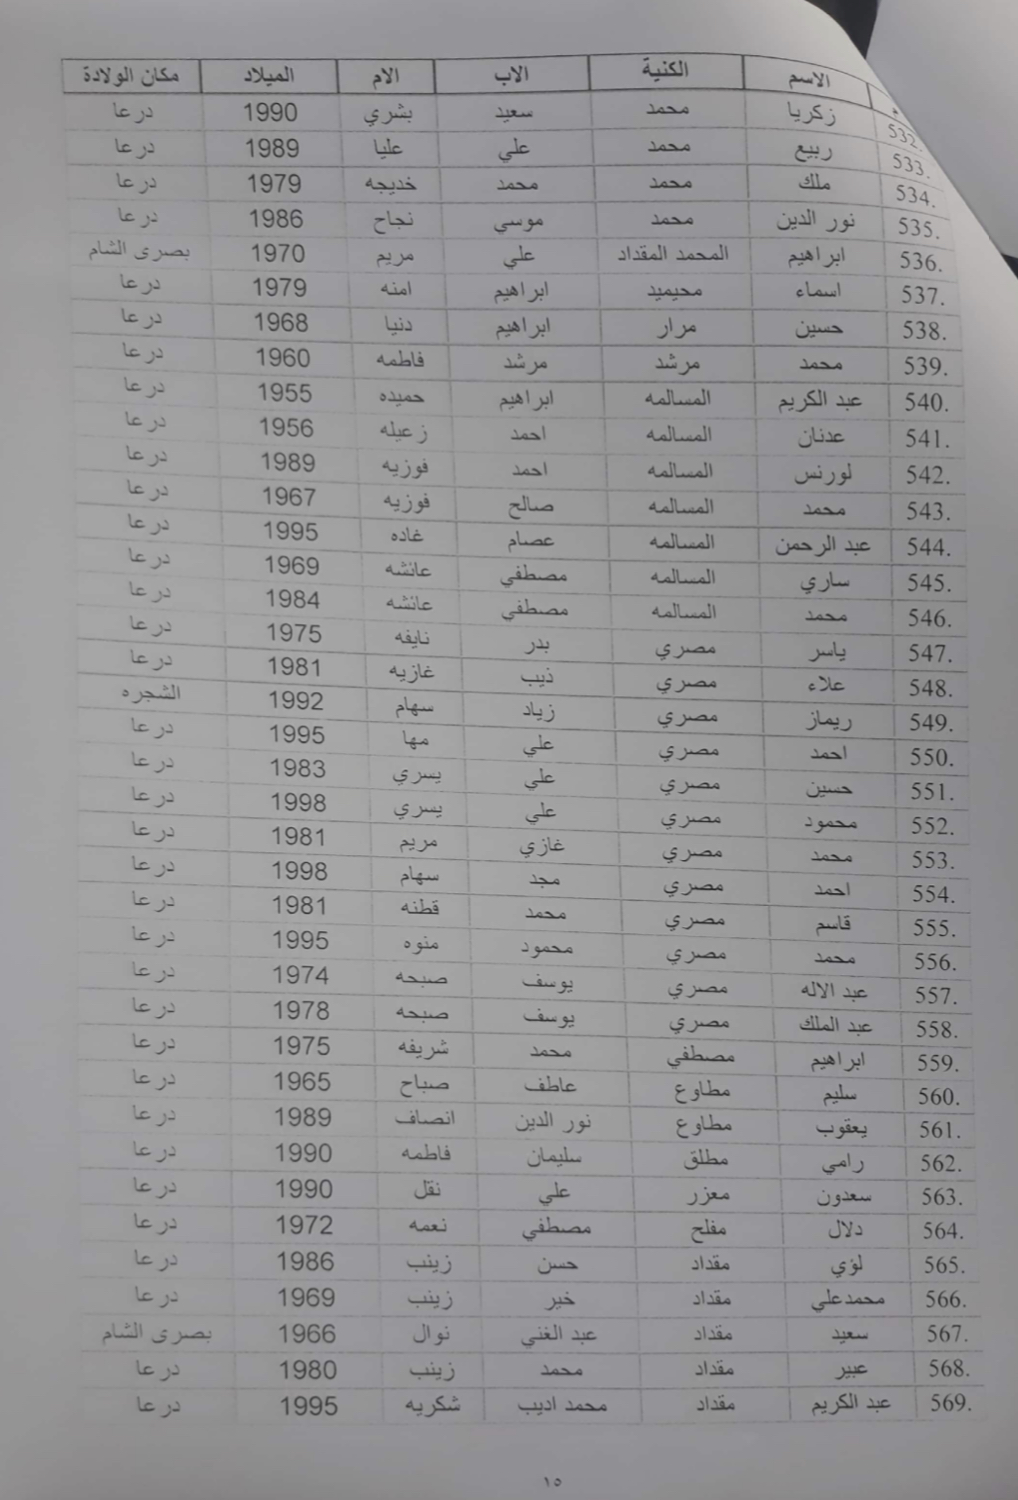 م الاسم الكنية الاب الام الميلاد مكان الولادة
532. زكريا محمد سعيد بشري 1990 درعا
533. ربيع محمد علي عليا 1989 درعا
534. ملك محمد محمد خديجه 1979 درعا
535. نور الدين محمد موسي نجاح 1986 درعا
536. ابراهيم المحمد المقداد علي مريم 1970 بصرى الشام
537. اسماء محيميد ابراهيم امنه 1979 درعا
538. حسين مرار ابراهيم دنيا 1968 درعا
539. محمد مرشد مرشد فاطمه 1960 درعا
540. عبد الكريم المسالمه ابراهيم حميده 1955 درعا
541. عدنان المسالمه احمد زعيله 1956 درعا
542. لورنس المسالمه احمد فوزيه 1989 درعا
543. محمد المسالمه صالح فوزيه 1967 درعا
544. عبد الرحمن المسالمه عصام غاده 1995 درعا
545. ساري المسالمه مصطفي عائشه 1969 درعا
546. محمد المسالمه مصطفي عائشه 1984 درعا
547. ياسر مصري بدر نايفه 1975 درعا
548. علاء مصري ذيب غازيه 1981 درعا
549. ريماز مصري زياد سهام 1992 الشجره
550. احمد مصري علي مها 1995 درعا
551. حسين مصري علي يسري 1983 درعا
552. محمود مصري علي يسري 1998 درعا
553. محمد مصري غازي مريم 1981 درعا
554. احمد مصري مجد سهام 1998 درعا
555. قاسم مصري محمد قطنه 1981 درعا
556. محمد مصري محمود منوه 1995 درعا
557. عبد الاله مصري يوسف صبحه 1974 درعا
558. عبد الملك مصري يوسف صبحه 1978 درعا
559. ابراهيم مصطفي محمد شريفه 1975 درعا
560. سليم مطاوع عاطف صباح 1965 درعا
561. يعقوب مطاوع نور الدين انصاف 1989 درعا
562. رامي مطلق سليمان فاطمه 1990 درعا
563. سعدون معزر علي نقل 1990 درعا
564. دلال مفلح مصطفي نعمه 1972 درعا
565. لؤي مقداد حسن زينب 1986 درعا
566. محمدعلي مقداد خير زينب 1969 درعا
567. سعيد مقداد عبد الغني نوال 1966 بصرى الشام
568. عبير مقداد محمد زينب 1980 درعا
569. عبد الكريم مقداد محمد اديب شكريه 1995 درعا
١٥